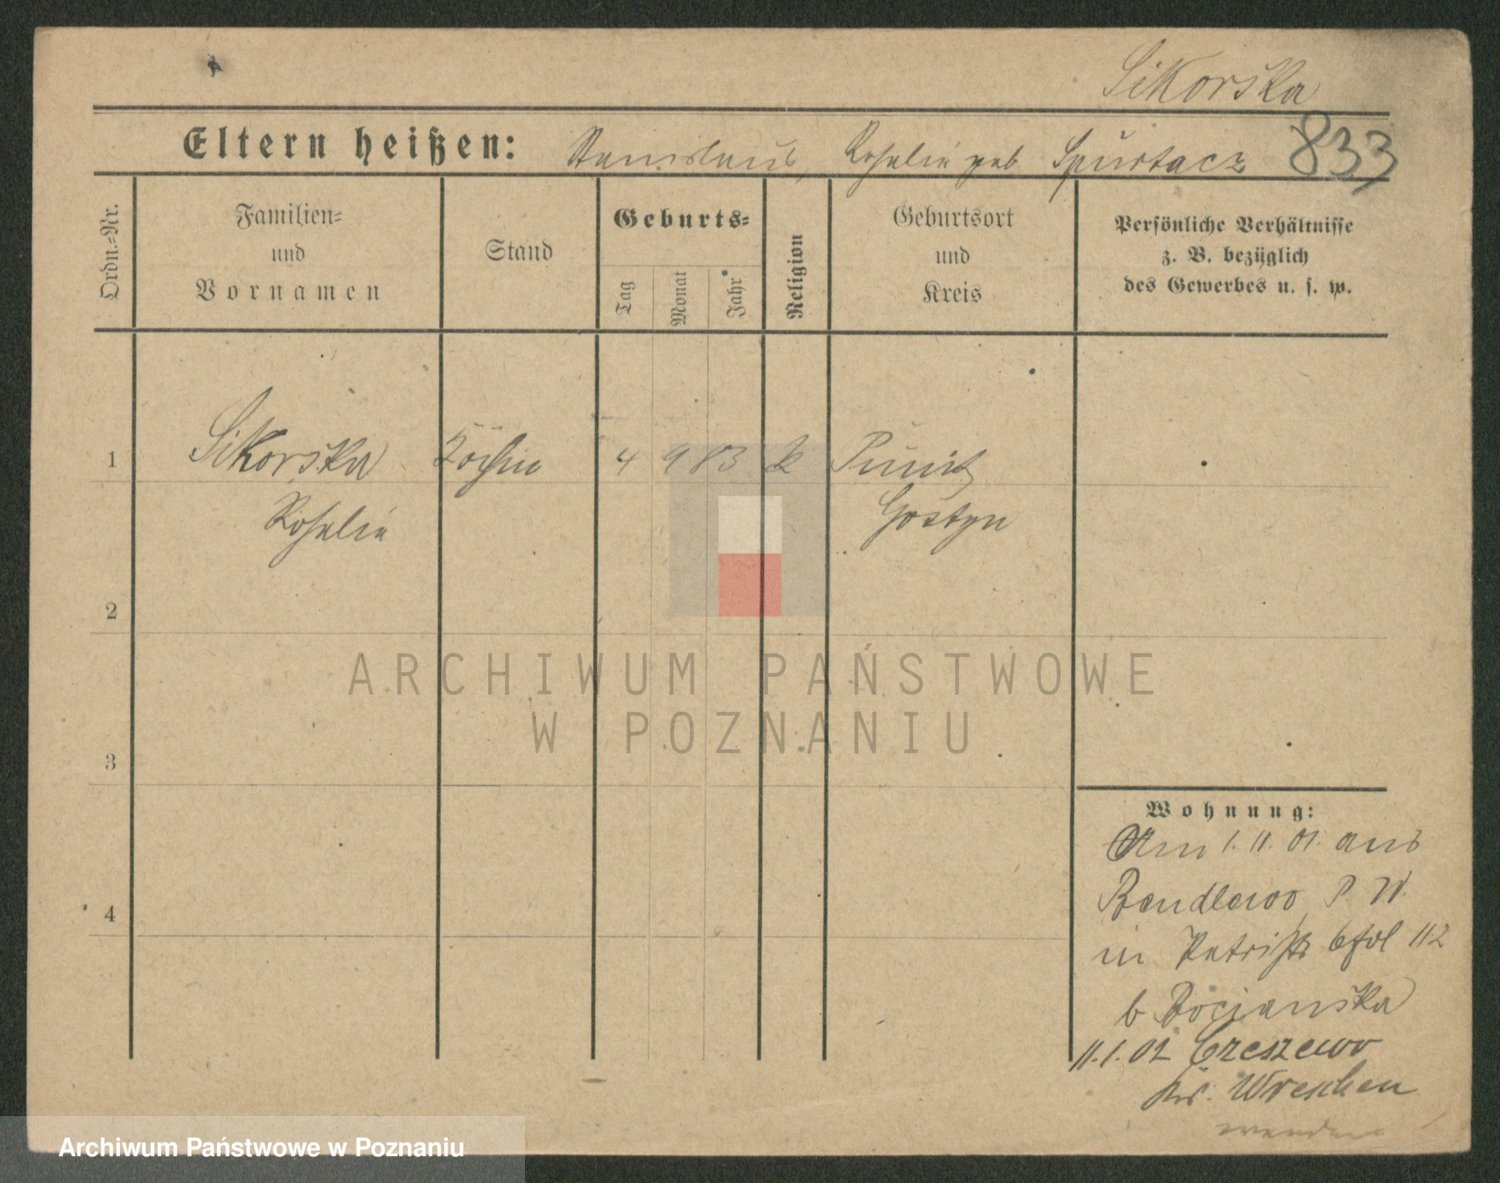 Sikorska
833
Eltern heißen: Stanislaus, Rosalie geb Spurtacz
Ordn.-Nr.
Familien-
und
Vornamen
Stand
Geburts-
Tag
Monat
Jahr
Religion
Geburtsort
und
Kreis
Persönliche Verhältnisse
z. B. bezüglich
des Gewerbes u. s. w.
1 Sikorska Köchin 4 9 83 k Punitz
Rosalie Gostyn
2
3
4
Wohnung:
Am 1.11.01. aus
Bendlewo P. W.
in Patristr 6 fol 112
b Bocianska
11.1.02 Czeszewo
Kr. Wreschen
wenden
ARCHIWUM PAŃSTWOWE
W POZNANIU
Archiwum Państwowe w Poznaniu